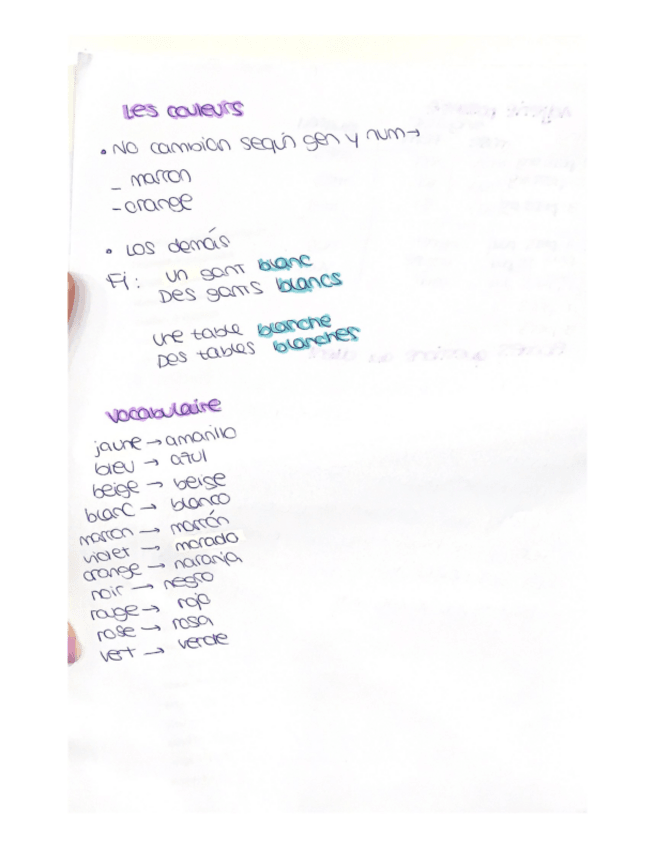 Les couleurs
• No cambian según gen y num→
- marron
- orange
• Los demás
Fi: un gant blanc
Des gants blancs
une table blanche
Des tables blanches
vocabulaire
jaune → amarillo
bleu → azul
beige → beige
blanc → blanco
marron → marrón
violet → morado
orange → naranja
noir → negro
rouge → rojo
rose → rosa
vert → verde